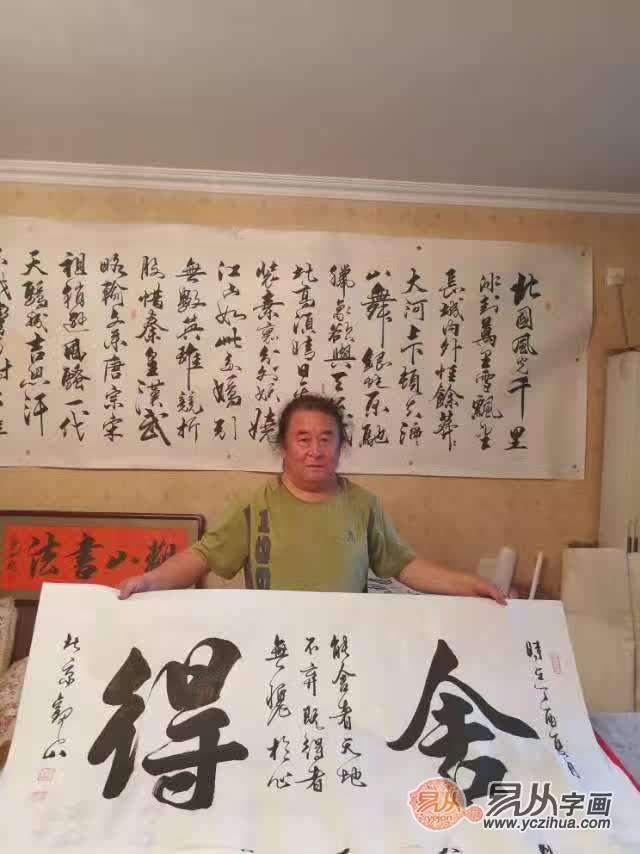 北国风光千里
冰封萬里雪飄望
長城内外惟餘莽
大河上下頓失滔
山舞銀蛇原馳
臘象欲與天
比高須晴日
裝素裹分外妖嬈
江山如此多嬌引
無數英雄競折
腰惜秦皇漢武
略輸文采唐宗宋
祖稍遜風騷一代
天驕成吉思汗
山書法
時在丁酉夏月
舍
能舍者天地
不弃既得者
無愧於心
得
北京
山
易从
易从字画
www.yczihua.com